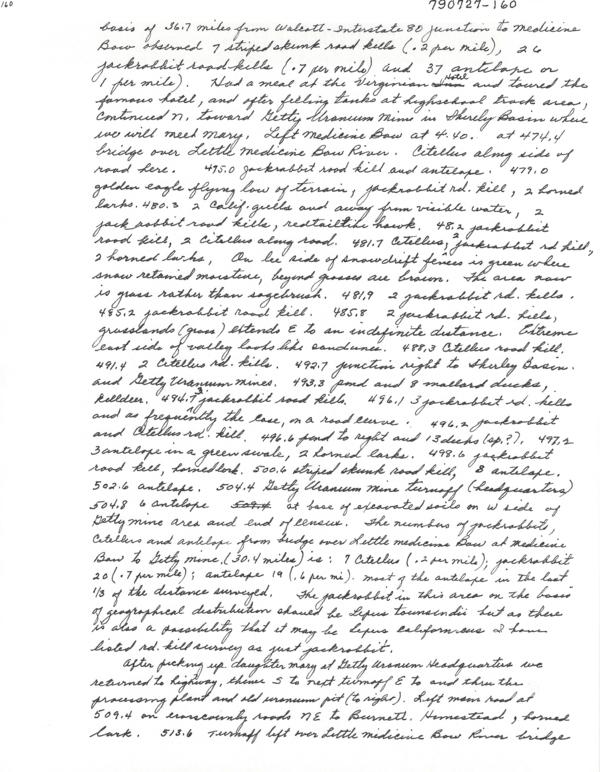 160
790727-160
basis of 36.7 miles from Walcott-Interstate 80 junction to Medicine
Bow observed 7 striped skunk road kills (.2 per mile), 26
jackrabbit road-kills (.7 per mile) and 37 antelope or
1 per mile). Had a meal at the Virginian Hotel and toured the
famous hotel, and after filling tanks at highschool track area,
continued N. toward Getty Uranium Mine in Shirley Basin where
we will meet Mary. Left Medicine Bow at 4:40. at 474.4
bridge over Little Medicine Bow River. Citellus along side of
road here. 495.0 jackrabbit road kill and antelope. 479.0
golden eagle flying low of terrain, jackrabbit rd. kill, 2 horned
larks. 480.3 2 Calif. gulls and away from visible water, 2
jackrabbit road kills, redtail hawk. 48.2 jackrabbit
road kill, 2 Citellus along road. 481.7 Citellus, 2 jackrabbit rd kill,
2 horned larks, On lee side of snowdrift fences is green where
snow retained moisture, beyond grasses are brown. The area now
is grass rather than sagebrush. 481.9 2 jackrabbit rd. kills.
485.2 jackrabbit road kill. 485.8 2 jackrabbit rd. kills,
grasslands (grass) extends E to an indefinite distance. Extreme
east side of valley looks like sand dunes. 488.3 Citellus road kill.
491.4 2 Citellus rd. kills. 492.7 junction right to Shirley Basin.
and Getty Uranium mines. 493.3 pond and 8 mallard ducks,
killdeer. 494.7 3 jackrabbit road kills. 496.1 3 jackrabbit rd. kills
and as frequently the case, on a road curve. 496.2 jackrabbit
and Citellus rd. kill. 496.6 pond to right and 13 ducks (sp.?). 497.2
3 antelope in a green swale, 2 horned larks. 498.6 jackrabbit
road kill, horned lark. 500.6 striped skunk road kill, 8 antelope.
502.6 antelope. 504.4 Getty Uranium Mine turnoff (headquarters)
504.8 6 antelope at base of excavated soils on W side of
Getty mine area and end of census. The numbers of jackrabbit,
Citellus and antelope from bridge over Little Medicine Bow at Medicine
Bow to Getty mine (30.4 miles) is: 7 Citellus (.2 per mile); jackrabbit
20 (.7 per mile); antelope 19 (.6 per mi). most of the antelope in the last
1/3 of the distance surveyed. The jackrabbit in this area on the basis
of geographical distribution should be Lepus townsendis but as there
is also a possibility that it may be Lepus californicus I have
listed rd. kill survey as just jackrabbit.
After picking up daughter Mary at Getty Uranium Headquarters we
returned to highway, thence S to next turnoff E to and thru the
processing plant and old uranium pit (to right). Left main road at
509.4 on crosscountry roads NE to Burnett. Homestead, horned
lark. 513.6 Turnoff left over Little Medicine Bow River bridge